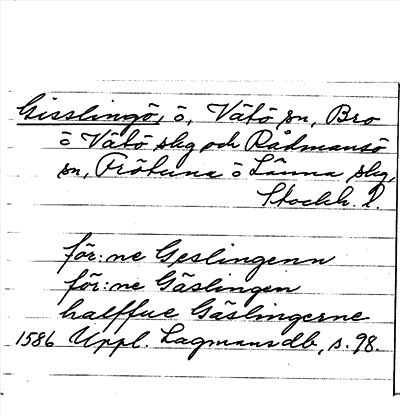 Gisslingö, ö, Vätö sn, Bro
o Vätö slg och Rådmansö
sn, Frötuna o Länna slg,
Stockh. l.
för:ne Geslingenn
för:ne Gäslingen
halffue Gäslingerne
1586 Uppl. Lagmansdb, s. 98.